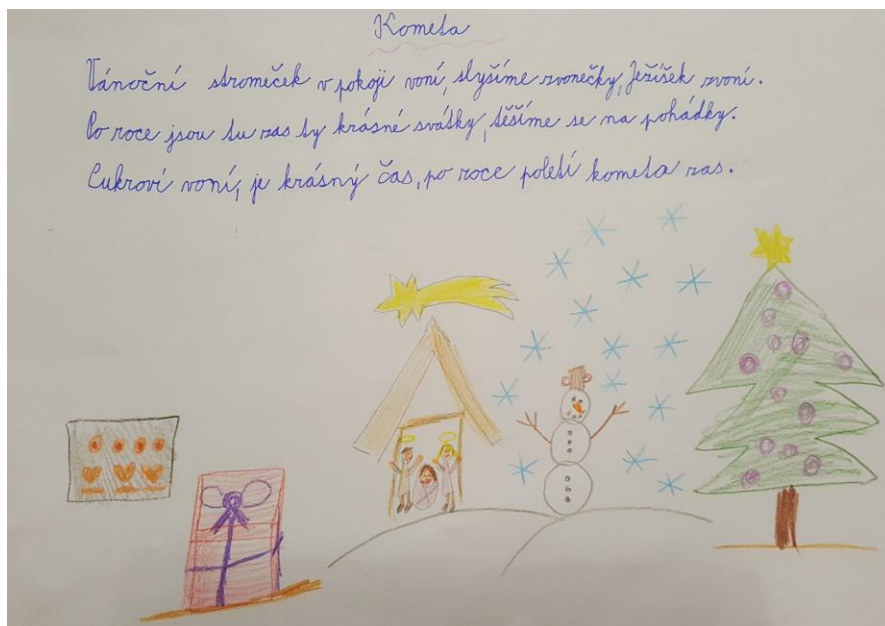 Kometa
Vánoční stromeček v pokoji voní, slyšíme zvonečky, Ježíšek zvoní.
Po roce jsou tu zas ty krásné svátky, těšíme se na pohádky.
Cukroví voní, je krásný čas, po roce poletí kometa zas.